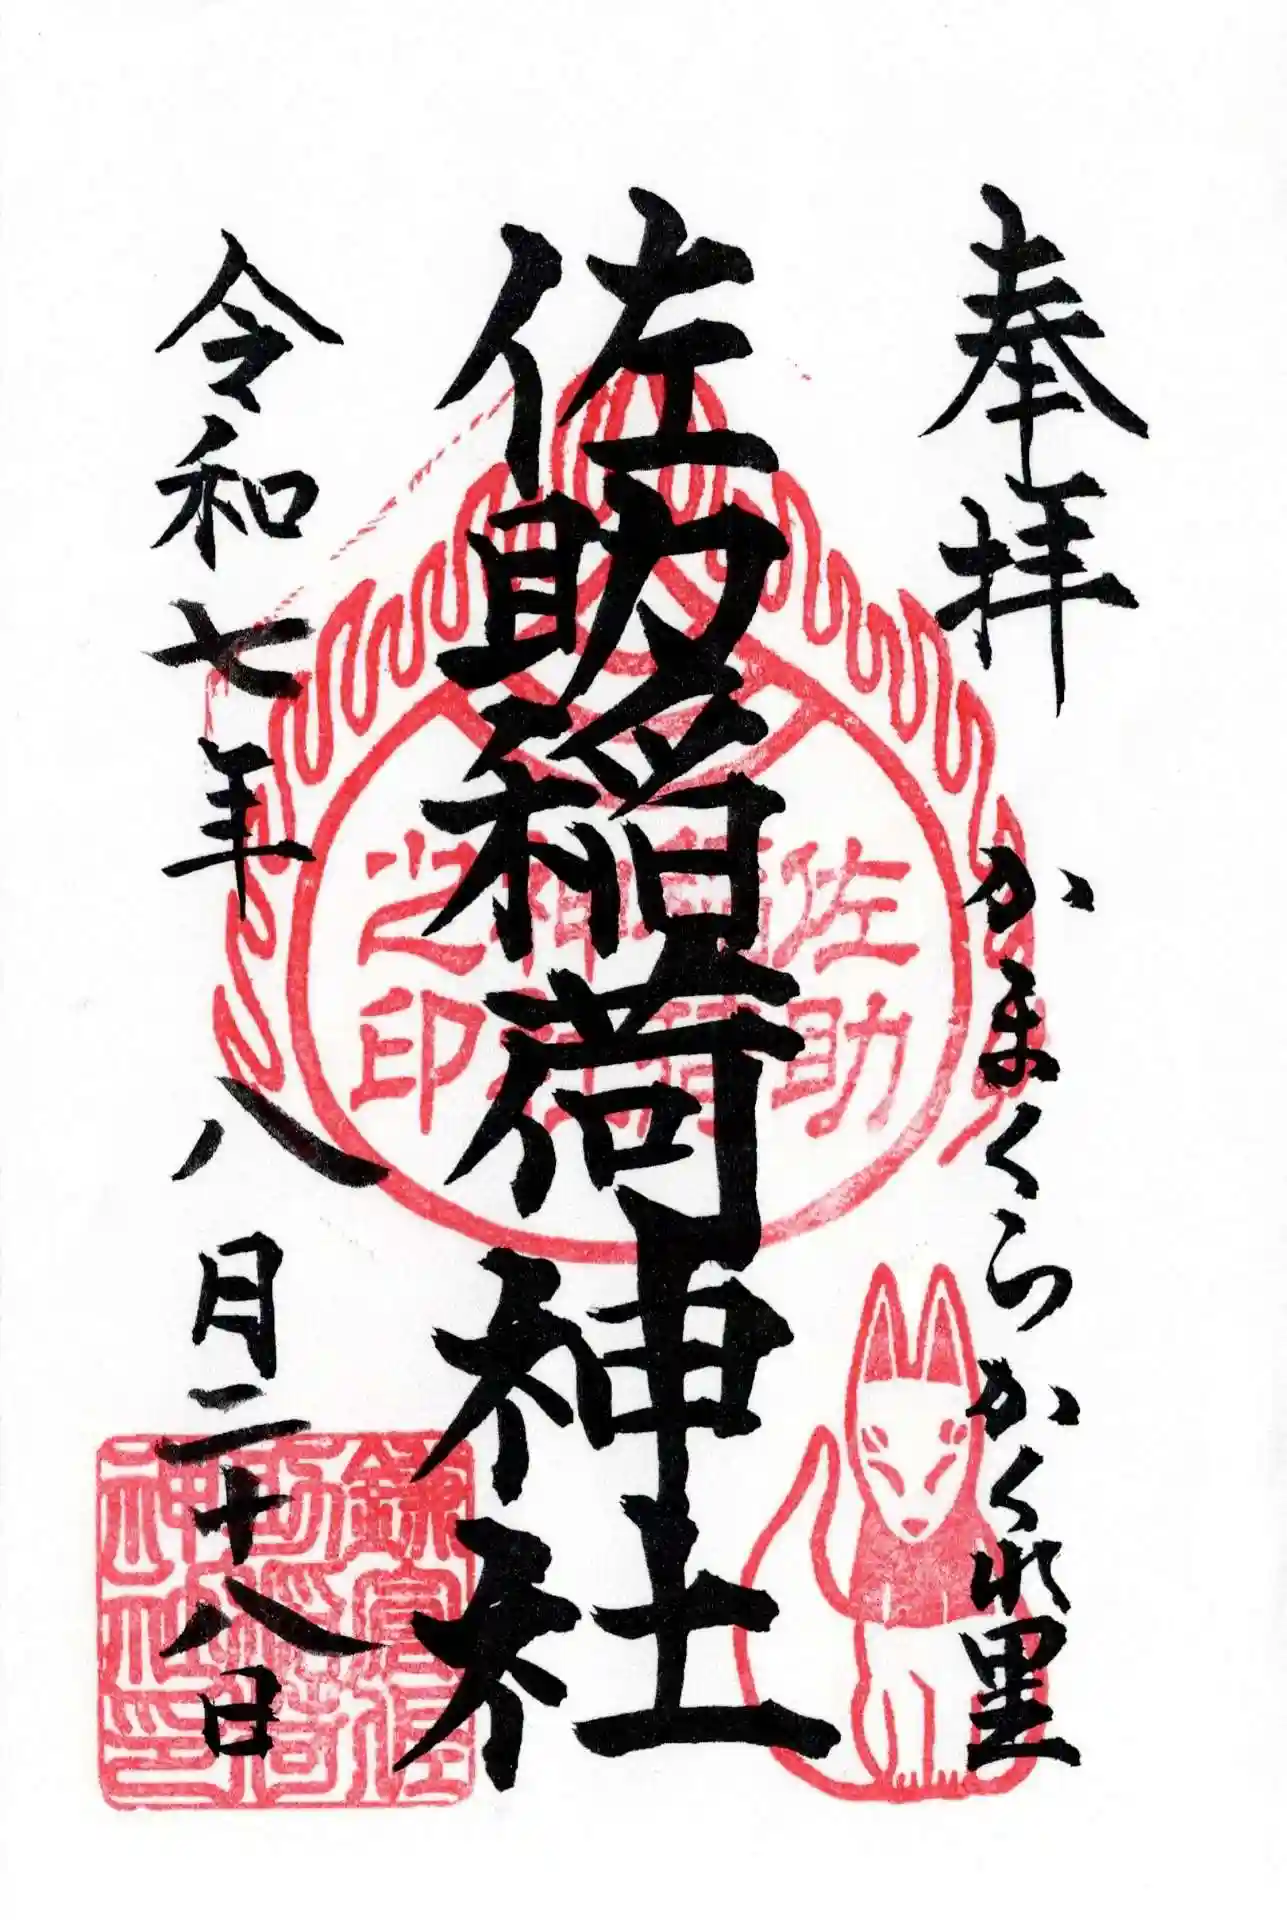 奉拝
かまくらかくれ里
佐助稲荷神社
令和七年八月二十八日
佐助
稲荷
神社
之印
鎌倉佐
助稲荷
神社之印